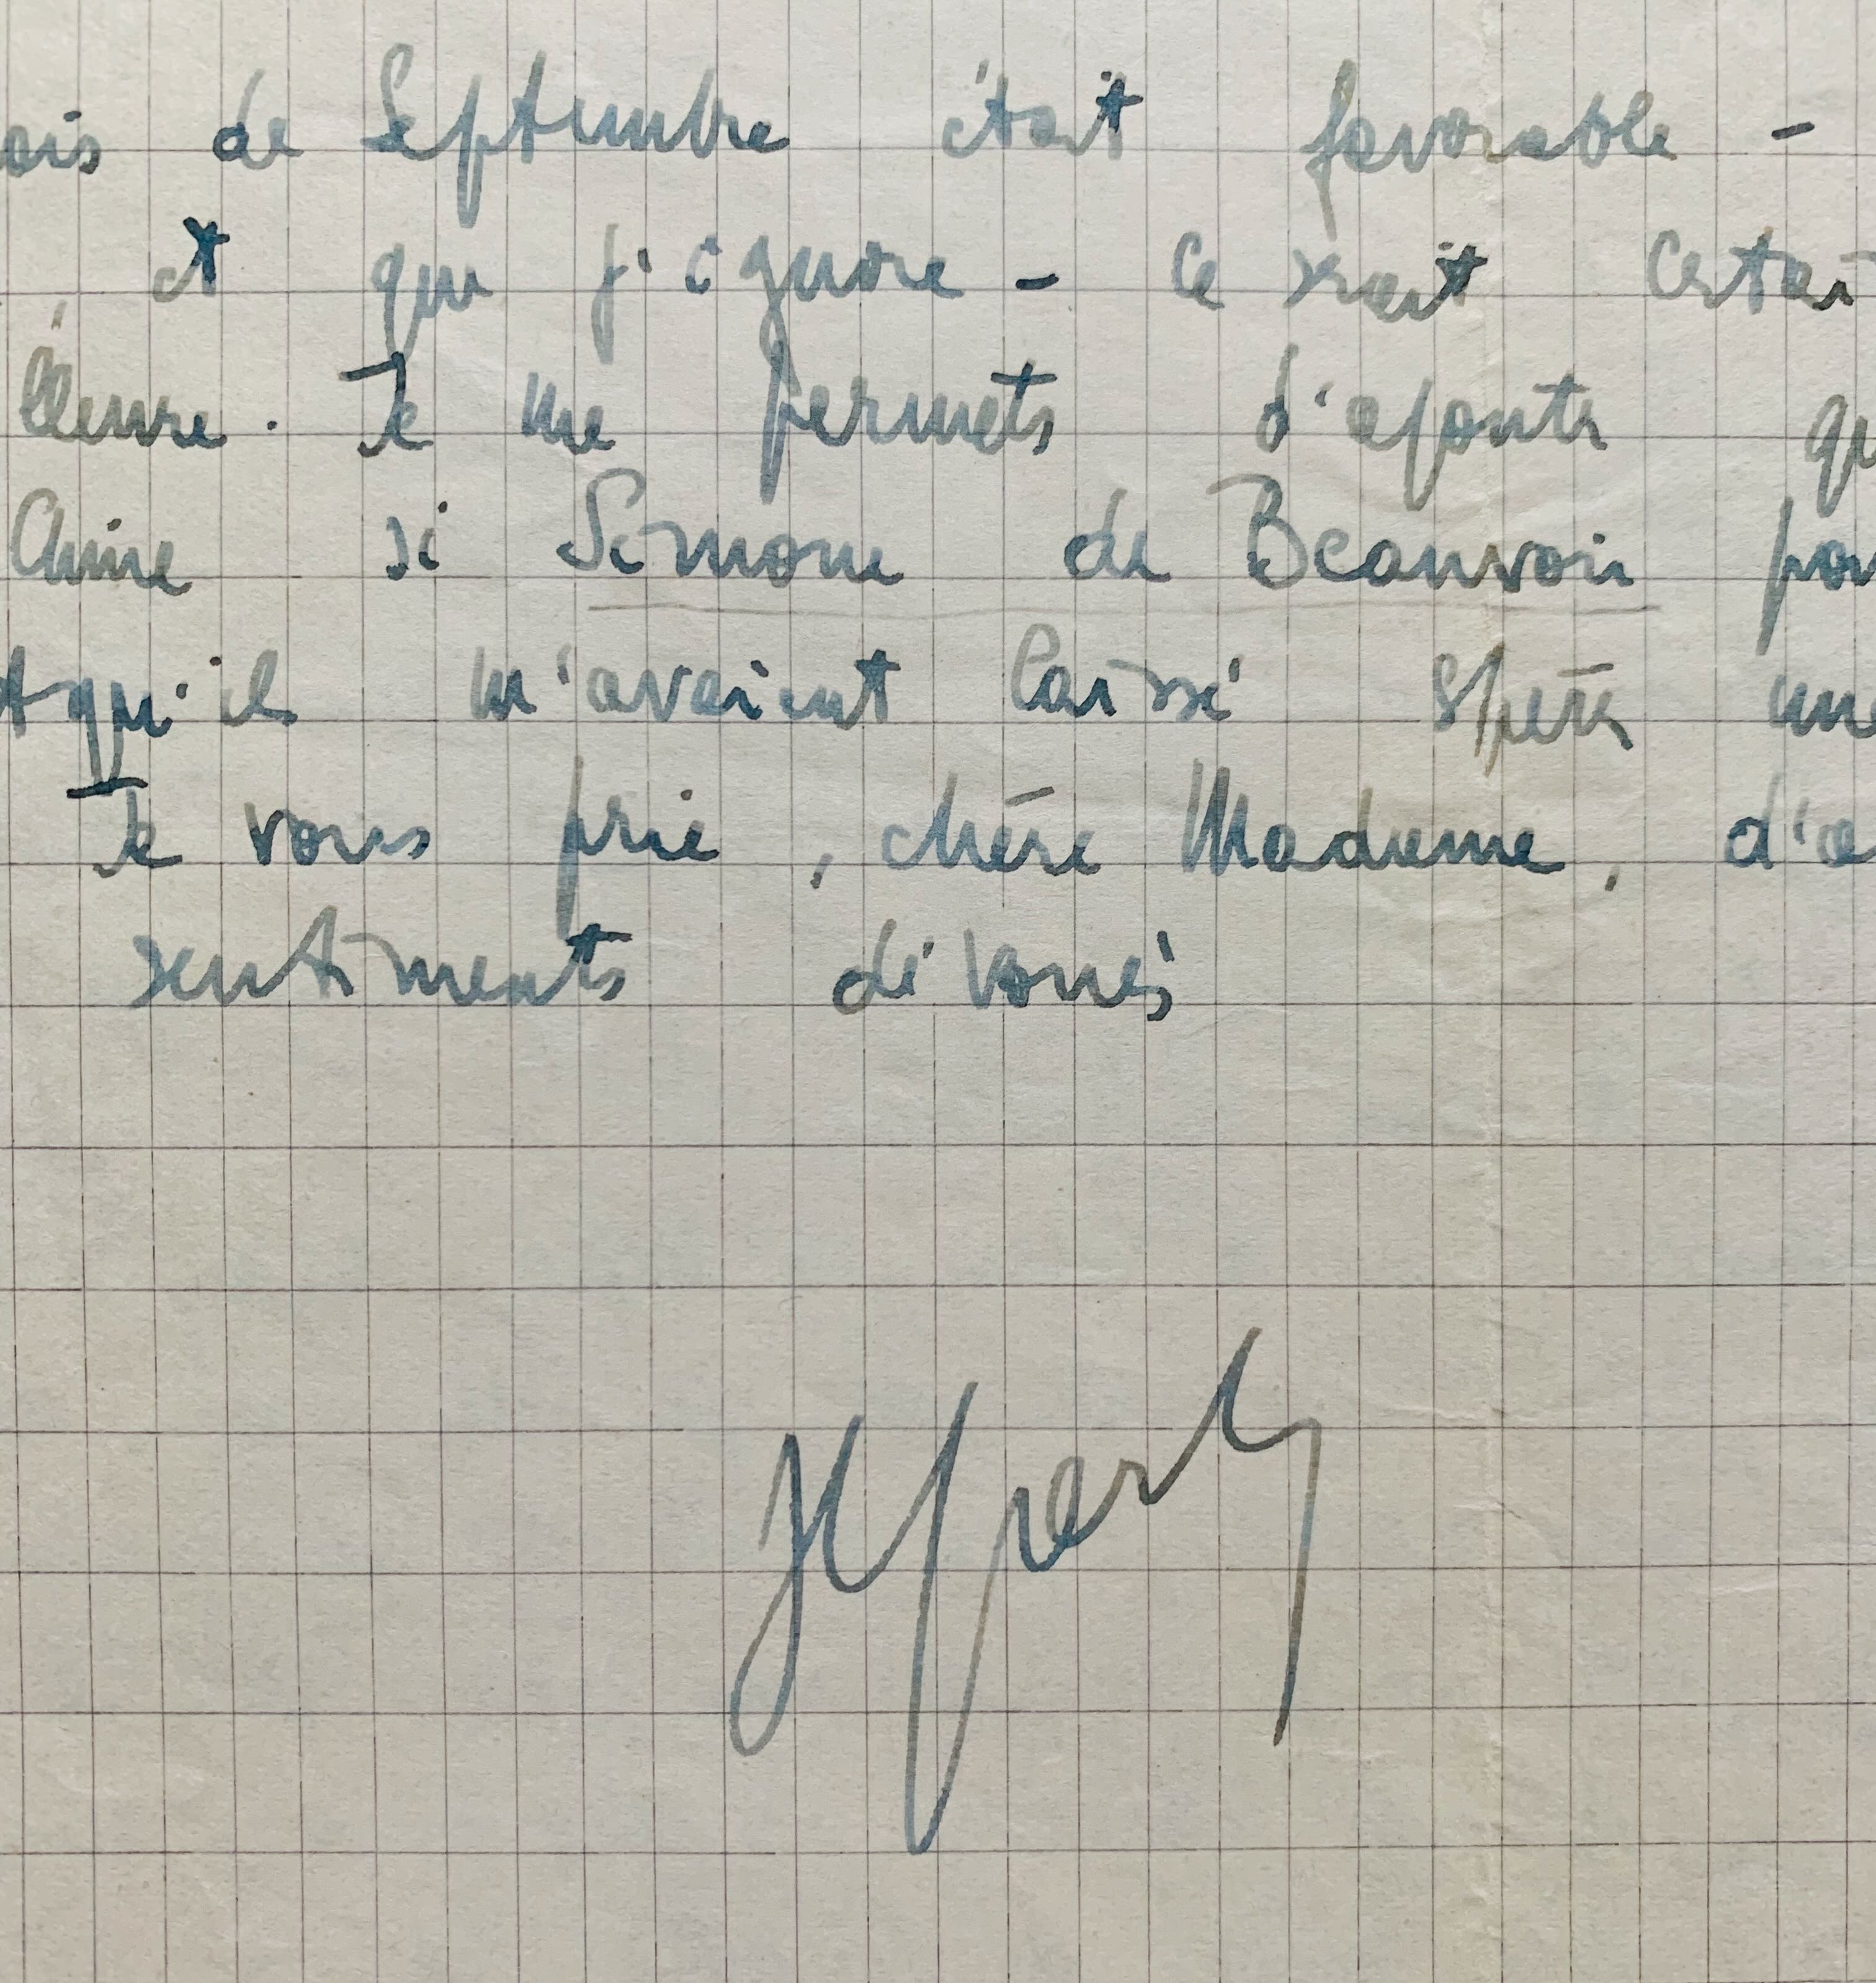 ois de Septembre était favorable -
, et que j'ignore - ce serait certai
lleure. Je me permets d'ajouter qu
Anne si Simone de Beauvoir pou
t qu'ils m'avaient laissé espérer une
Je vous prie, chère Madame, d'a
sentiments dévoués